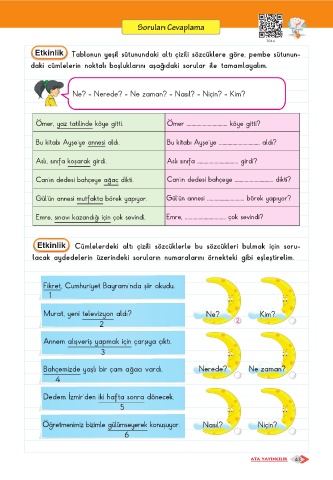 Soruları Cevaplama
Etkinlik Tablonun yeşil sütunundaki altı çizili sözcüklere göre, pembe sütunun-
daki cümlelerin noktalı boşluklarını aşağıdaki sorular ile tamamlayalım.
Ne? - Nerede? - Ne zaman? - Nasıl? - Niçin? - Kim?
Ömer, yaz tatilinde köye gitti. Ömer .................... köye gitti?
Bu kitabı Ayşe'ye annesi aldı. Bu kitabı Ayşe'ye .................... aldı?
Aslı, sınıfa koşarak girdi. Aslı sınıfa .................... girdi?
Can'ın dedesi bahçeye ağaç dikti. Can'ın dedesi bahçeye .................... dikti?
Gül'ün annesi mutfakta börek yapıyor. Gül'ün annesi .................... börek yapıyor?
Emre, sınavı kazandığı için çok sevindi. Emre, .................... çok sevindi?
Etkinlik Cümlelerdeki altı çizili sözcüklerle bu sözcükleri bulmak için soru-
lacak aydedelerin üzerindeki soruların numaralarını örnekteki gibi eşleştirelim.
Fikret, Cumhuriyet Bayramı'nda şiir okudu.
1
Murat, yeni televizyon aldı?
2
Ne? Kim?
2
Annem alışveriş yapmak için çarşıya çıktı.
3
Bahçemizde yaşlı bir çam ağacı vardı.
4
Nerede? Ne zaman?
Dedem İzmir'den iki hafta sonra dönecek.
5
Öğretmenimiz bizimle gülümseyerek konuşuyor.
6
Nasıl? Niçin?
ATA YAYINCILIK 63